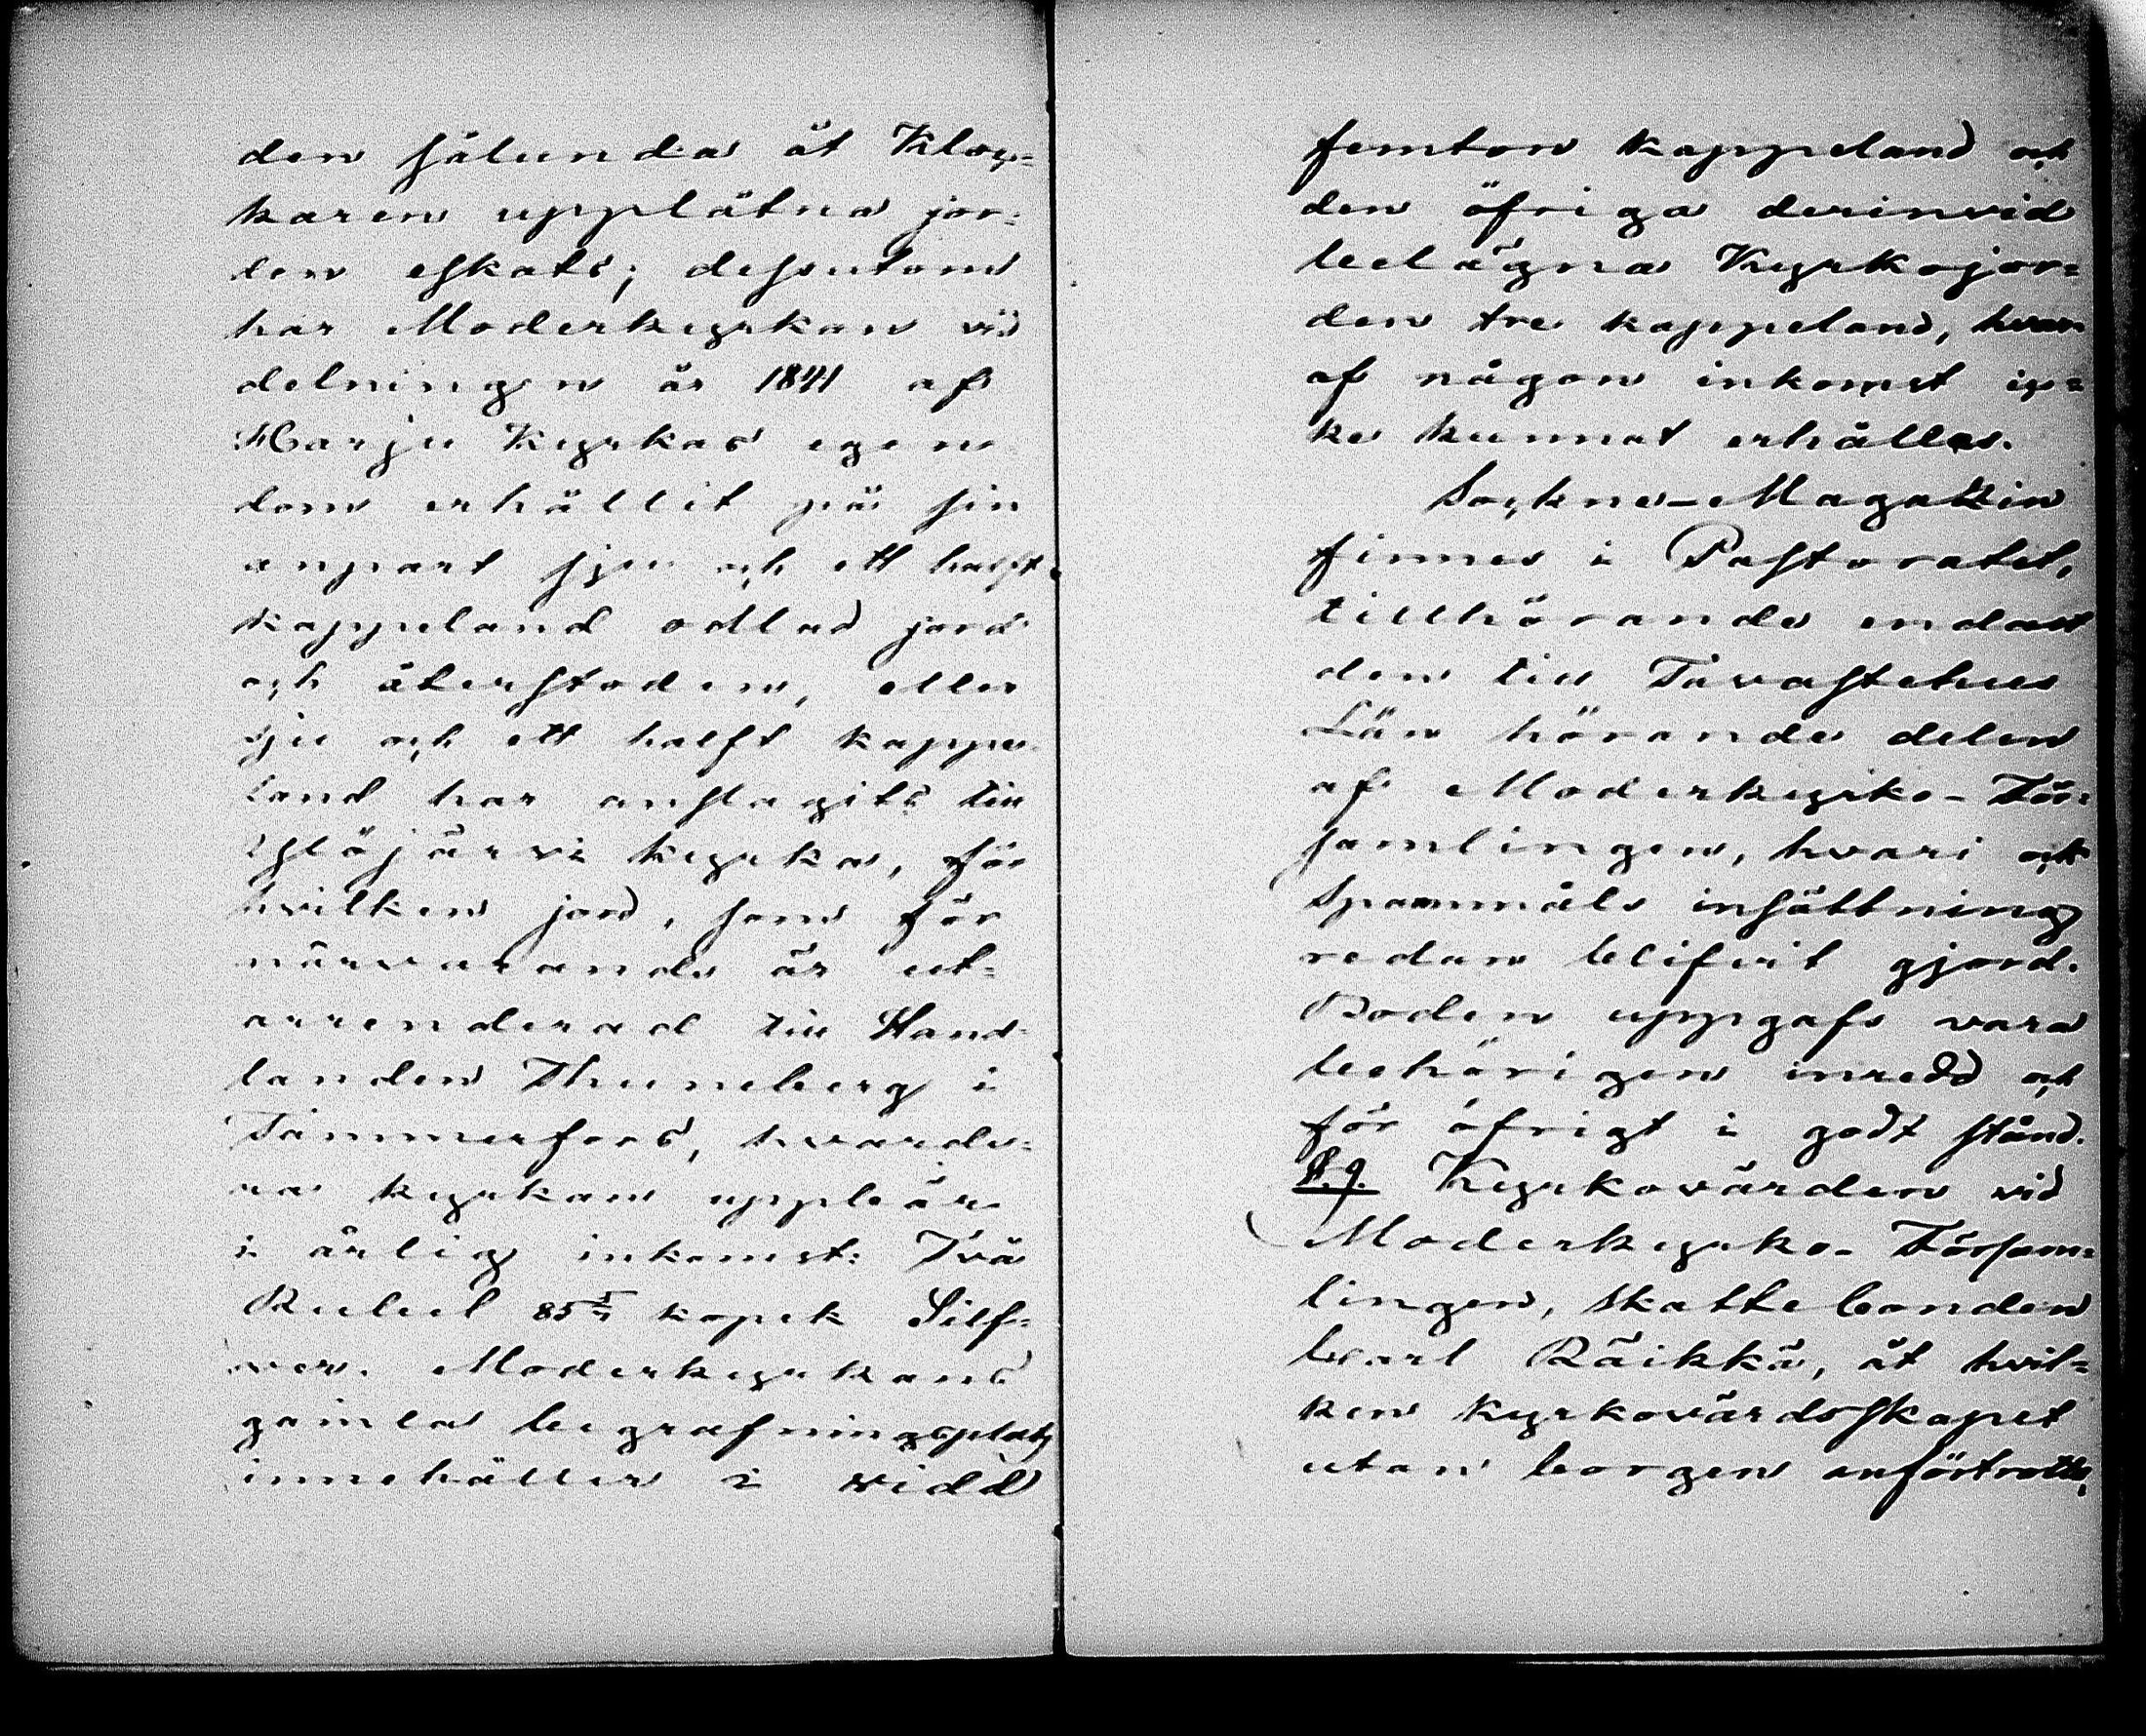 den sålunda åt Kloc=
karen upplåtna jor=
den eskats; dessutom
har Moderkyrkan vid
delningen år 1841 af
Harju Kyrkas egen
dom erhållit på sin
anpart sju och ett halft
kappeland odlad jord
och återstoden, eller
sju och ett halft kappe
land har anslagits till
Ylöjärvi kyrka, för
hvilken jord, som för
närvarande är ut=
arrenderad till Hand=
landen Thuneberg i
Tammerfors, hvarde=
ra kyrkan uppbär
i årlig inkomst: Två
Rubel 85 5/7 kopek Silf=
ver. Moderkyrkans
gamla begrafningsplats
innehåller i vidd
femton kappeland och
den öfriga derinvid
belägna Kyrkojor=
den tre kappeland, hvar
af någon inkomst ic=
ke kunnat erhållas.
Sockne-Magazin
finnes i Pastoratet,
tillhörande endast
den till Tavastehus
Län hörande delen
af Moderkyrko-För=
samlingen, hvari ock
Spannmåls insättning
redan blifvit gjord.
Boden uppgafs vara
behörigen inredd och
för öfrigt i godt stånd.
§.9. Kyrkovärden vid
Moderkyrko-Försam=
lingen, skattebonden
Carl Räikkä, åt hvil=
ken kyrkovärdsskapet
utan borgen anförtrotts,